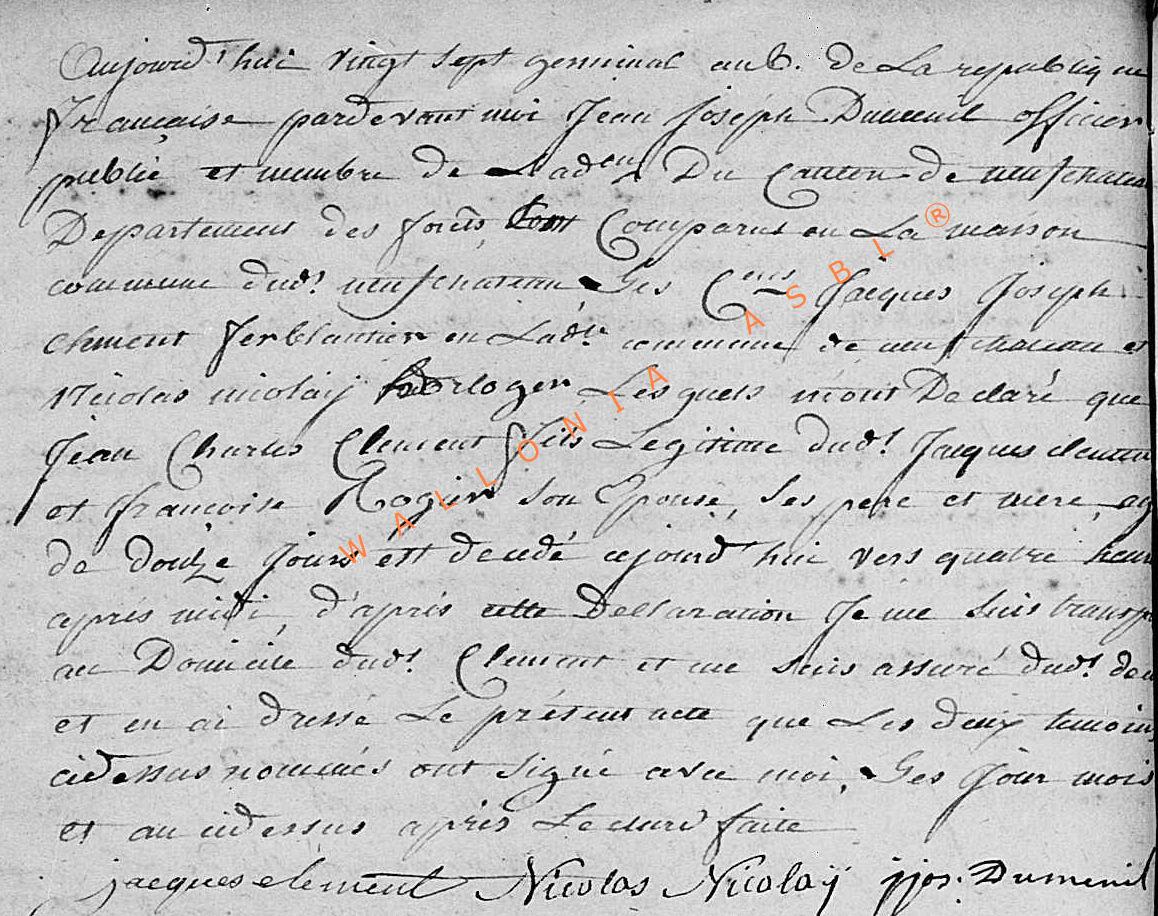 Aujourd'hui vingt sept germinal an 6. de La republique
française pardevant moi Jean Joseph Dumenil officier
public et membre de L'ad.on Du Canton de neufchateau
Departement des forêts, sont Comparus en La maison
commune dud.t neufchateau Les C.ens Jacques Joseph
clement ferblantier en Lad.te commune de neufchateau et
Nicolas nicolaÿ horloger Lesquels m'ont Declaré que
Jean Charles Clement fils Legitime dud.t Jacques clement
et françoise Rogier son Epouse, ses pere et mere, ag
de douze Jours est decedé ajourd'hui vers quatre heur
après midi, d'après cette Declaration Je me suis transp
au Domicile dud.t Clement et me suis assuré dud.t dec
et en ai dressé Le présent acte que Les deux temoins
cidessus nommés ont signé avec moi, Les Jour mois
et an cidessus après Lecture faite
jacques clement Nicolas Nicolaÿ jjos. Dumenil
WALLONIA ASBL ®